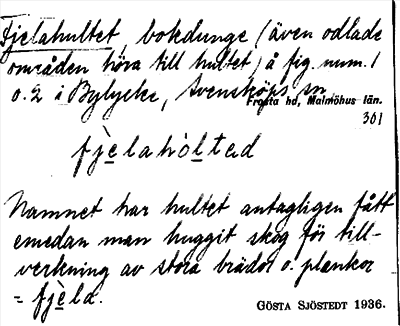 Fjelahultet, bokdunge (även odlade
områden höra till hultet) å fig. num. 1
o. 2 i Bylycke, Svensköps sn
Frosta hd, Malmöhus län.
361
fjèlahòltad
Namnet har hultet antagligen fått
emedan man huggit skog för till-
verkning av stora bräder o. plankor
= fjèla.
GÖSTA SJÖSTEDT 1936.